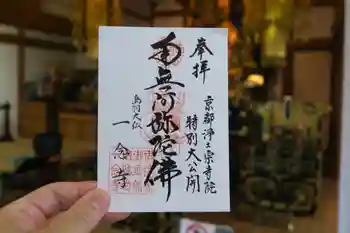 奉拝
京都浄土宗寺院
特別大公開
南無阿弥陀佛
鳥羽大仏
一念寺